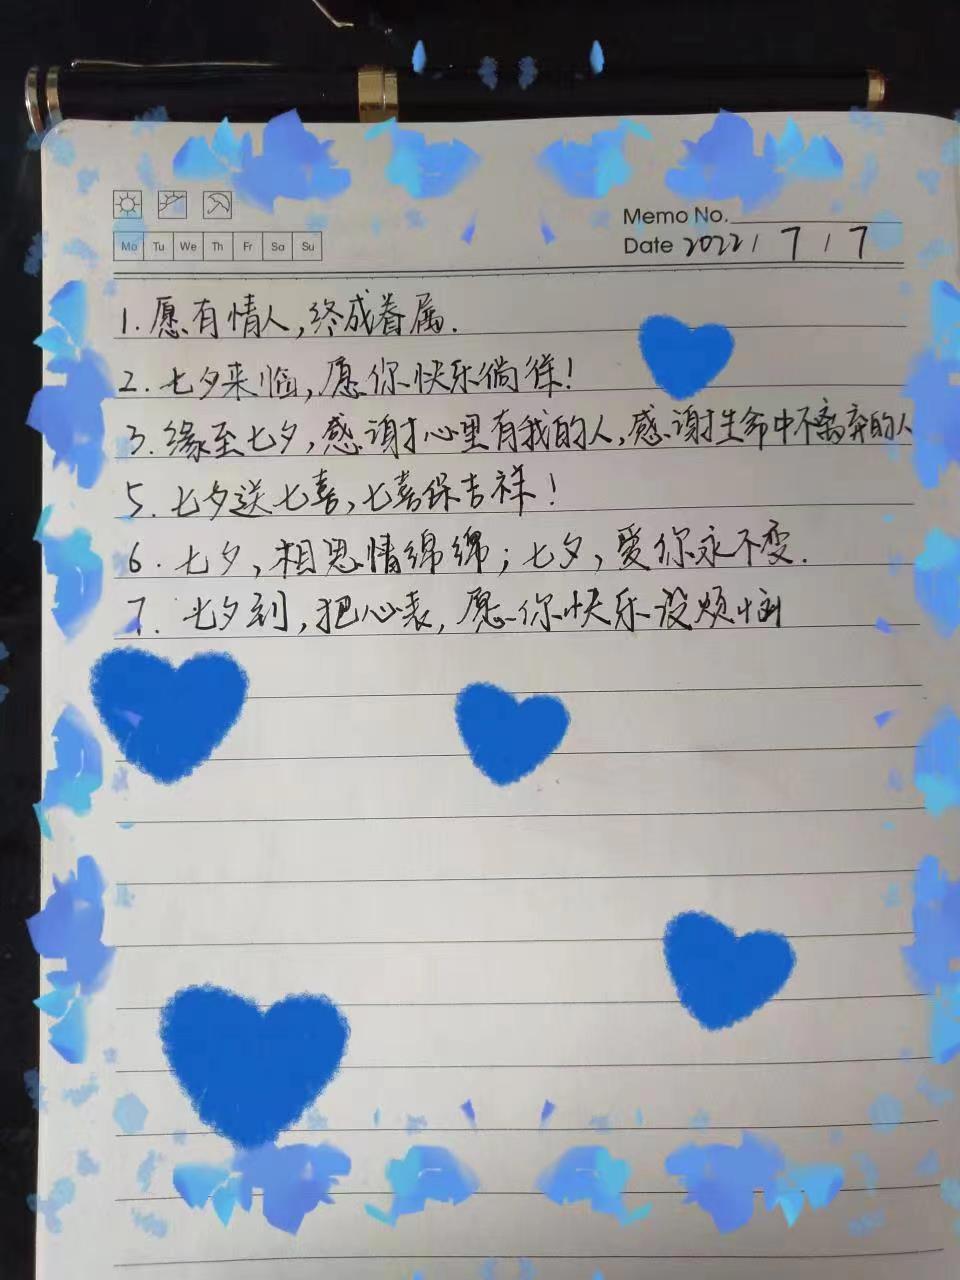 Memo No.
Mo Tu We Th Fr Sa Su
Date 2022 / 7 / 7
1. 愿有情人,终成眷属.
2. 七夕来临,愿你快乐徜徉!
3. 缘至七夕,感谢心里有我的人,感谢生命中不离弃的人
5. 七夕送七喜,七喜保吉祥!
6. 七夕,相思情绵绵;七夕,爱你永不变.
7. 七夕到,把心表,愿你快乐没烦恼